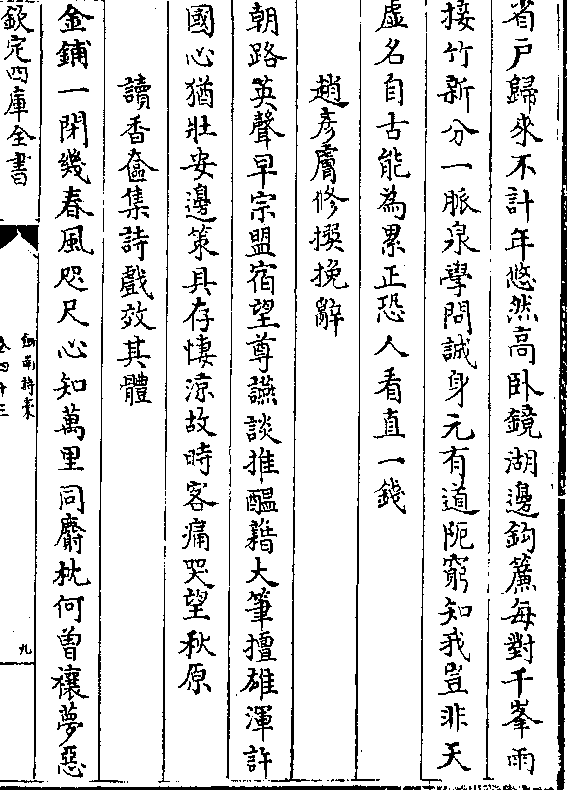 省戸歸來不計年悠然高臥鏡湖邊鈎簾每對千峯雨
接竹新分一脈泉學問誠身元有道阨窮知我豈非天
虚名自古能為累正恐人看直一錢
趙彦膚修撰挽辭
朝路英聲早宗盟宿望尊讌談推醖藉大筆擅雄渾許
國心猶壯安邊策具存悽涼故時客痛哭望秋原
讀香奩集詩戲效其體
金鋪一閉幾春風咫尺心知萬里同麝枕何曽禳夢惡
欽定四庫全書
劍南詩稾
卷四十三
九